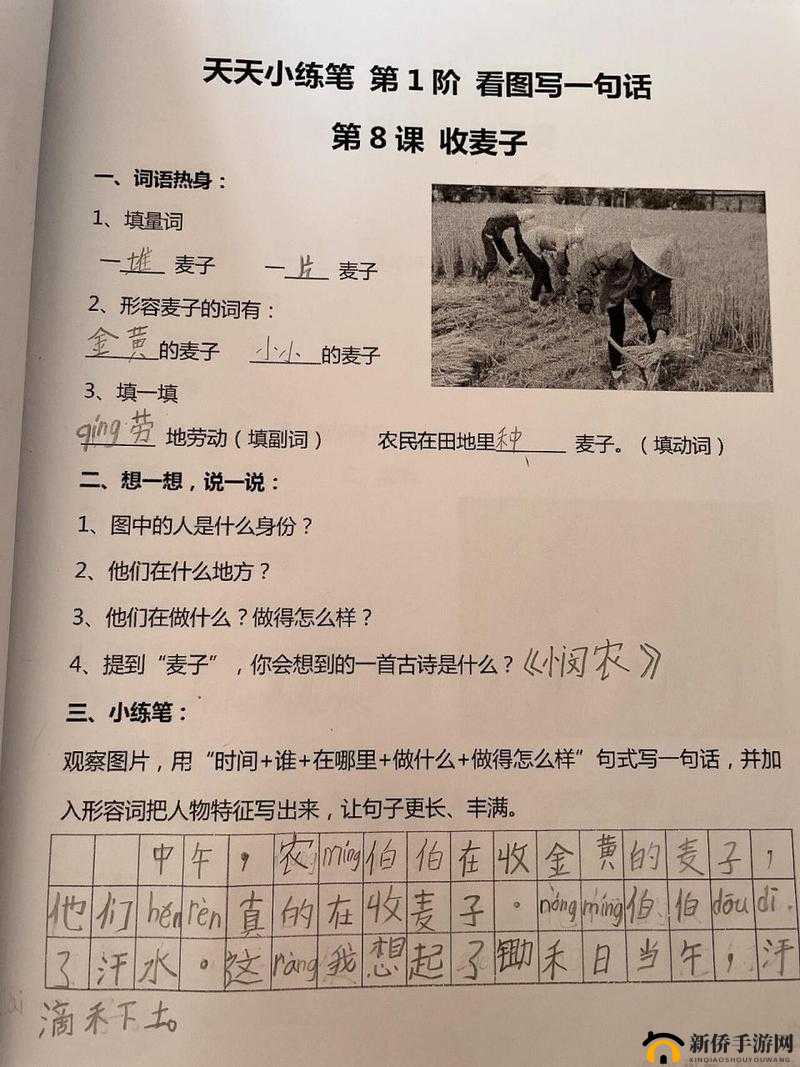 天天小练笔 第1阶 看图写一句话
第8课 收麦子
一、词语热身：
1、填量词
一堆 麦子 一片 麦子
2、形容麦子的词有：
金黄的麦子 小小的麦子
3、填一填
qíng劳 地劳动（填副词） 农民在田地里种 麦子。（填动词）
二、想一想，说一说：
1、图中的人是什么身份？
2、他们在什么地方？
3、他们在做什么？做得怎么样？
4、提到“麦子”，你会想到的一首古诗是什么？《悯农》
三、小练笔：
观察图片，用“时间+谁+在哪里+做什么+做得怎么样”句式写一句话，并加
入形容词把人物特征写出来，让句子更长、丰满。
中午，农míng伯伯在收金黄的麦子，
他们hěnrèn真的在收麦子。nóngmíng伯伯dōudī
了汗水。这ràng我想起了锄禾日当午，汗
滴禾下土。
新侨手游网
XINQIAOSHOUYOUWANG